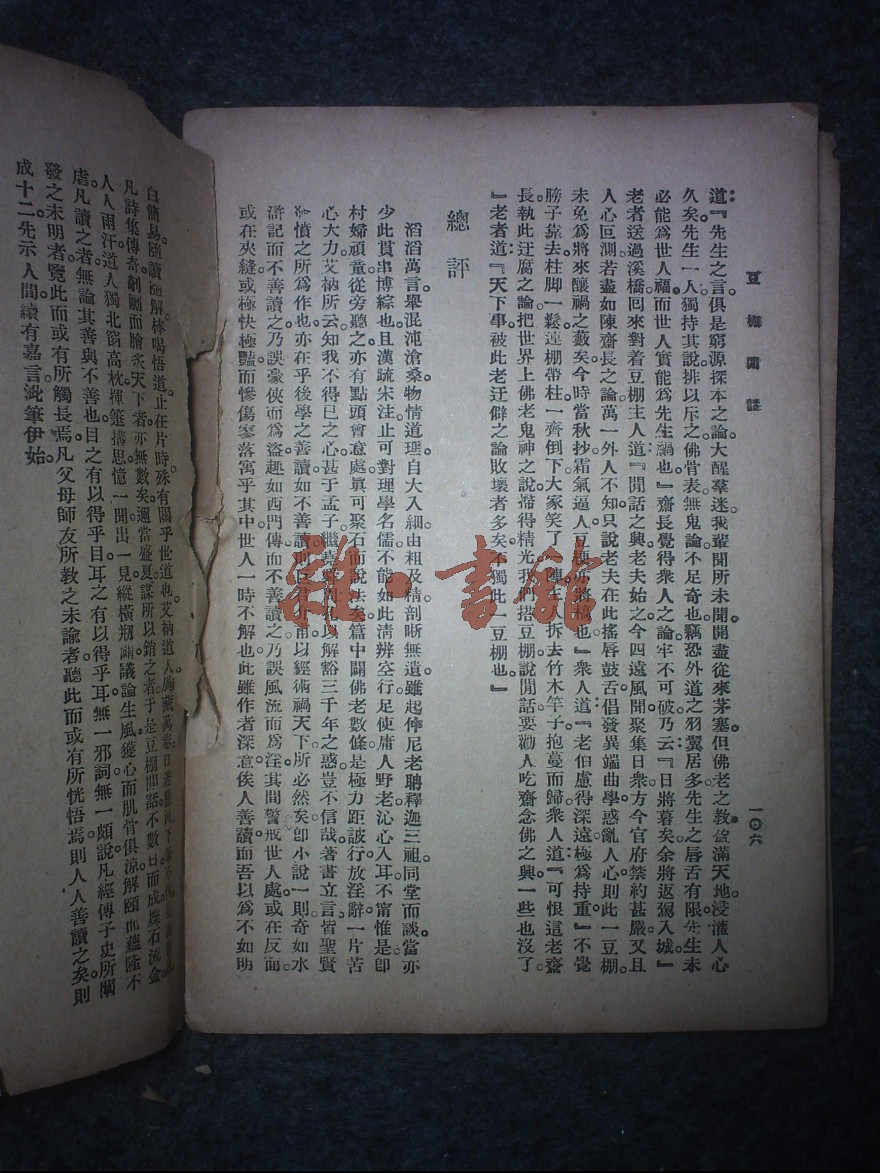 豆棚閒話
一〇六
道：『先生之言俱是窮源探本之論大醒羣迷。我輩聞所未聞開盡從來茅塞。但佛老之教盈滿天地。浸灌人心
久矣。先生一人獨持其說排以斥之。佛骨表無鬼論不足奇也。竊恐外道之羽翼居多先生之唇舌有限。先生未
必能爲世人福。而世人實能爲先生禍也。』齋長覺得衆人之論牢不可破乃云：『日將暮矣余將返駕入城。』
老者送過溪橋回來對着豆棚主人道：『閒話之興老夫始之。今四遠風聞聚集日衆。方今官府禁約甚嚴。又且
人心叵測若盡如陳齋長之論萬一外人不知。只說老夫在此搖唇鼓舌倡發異端曲學惑亂人心則此一豆棚。
未免爲將來釀禍之藪矣。今時當秋杪霜氣逼人豆梗亦將槁也。』衆人道：『老伯慮得深遠極爲持重。』不覺
膀子靠去柱脚一鬆連棚帶柱一齊倒下。大家笑了一陣。主人拆去竹木竿子抱蔓而歸。衆人道：『可恨這老齋
長執此迂腐之論。把世界上佛老鬼神之說掃得精光。我們搭豆棚說閒話要勸人吃齋念佛之興一些也沒了。
』老者道：『天下事被此老迂僻之論敗壞者多矣。不獨此一豆棚也。』
總評
滔滔萬言。舉混沌滄桑。物情道理。自大入細。由粗及精。剖晰無遺。雖起仲尼老聃釋迦三祖。同堂而談。當亦
少此貫串博綜也。且漢疏宋注止可對理學名儒。不能如此清辨空行。足使庸人野老沁心入耳。不甯惟是。卽
村婦頑童從旁聽之。亦有點頭會意處。眞可聚石而說法矣。篇中闢佛老數條。是極力距詖行放淫辭。一片苦
心大力。艾衲所云知我不得已之心甚于孟子繼
以解豁三千年之惑。豈不信哉。著書立言。皆聖賢
憤之所爲作也。亦在乎後學之善讀。如不善讀則
以經術禍天下所必然矣。卽小說一則奇如水
滸記。而不善讀之。乃誤豪俠而爲盜。趣如西門傳而不善讀之。乃誤風流而爲淫。其間警戒世人處。或在反面。
或在夾縫。或極快極豔而慘傷寥落寓乎其中。世人一時不解也。此雖作者深意。俟人善讀。而吾以爲不如明
白簡易。隨讀隨解。棒喝悟道。止在片時。殊有關乎世道也。艾衲道人胸藏萬卷。口若懸河。下筆不
凡詩集傳奇。剞劂而膾炙天下者。亦無數矣。邇當盛夏。謀所以銷之者。于是豆棚閒話不數日而成。爍石流金。
人人雨汗。道人獨北窗高枕。揮筆構思。憶一聞出一見。縱橫創議。論生風。獲心而肌骨俱涼。解頤而蘊隆不
虐。凡讀之者。無論其善與不善也。目之有以得乎目。耳之有以得乎耳。無一邪詞。無一頗說。凡經傳子史所闡
發之未明者。覽此而或有所觸長焉。凡父母師友所教之未諭者。聽此而或有所恍悟焉。則人人善讀之矣。則
成十二。先示人間。續有嘉言。泚筆伊始。
雜·書館